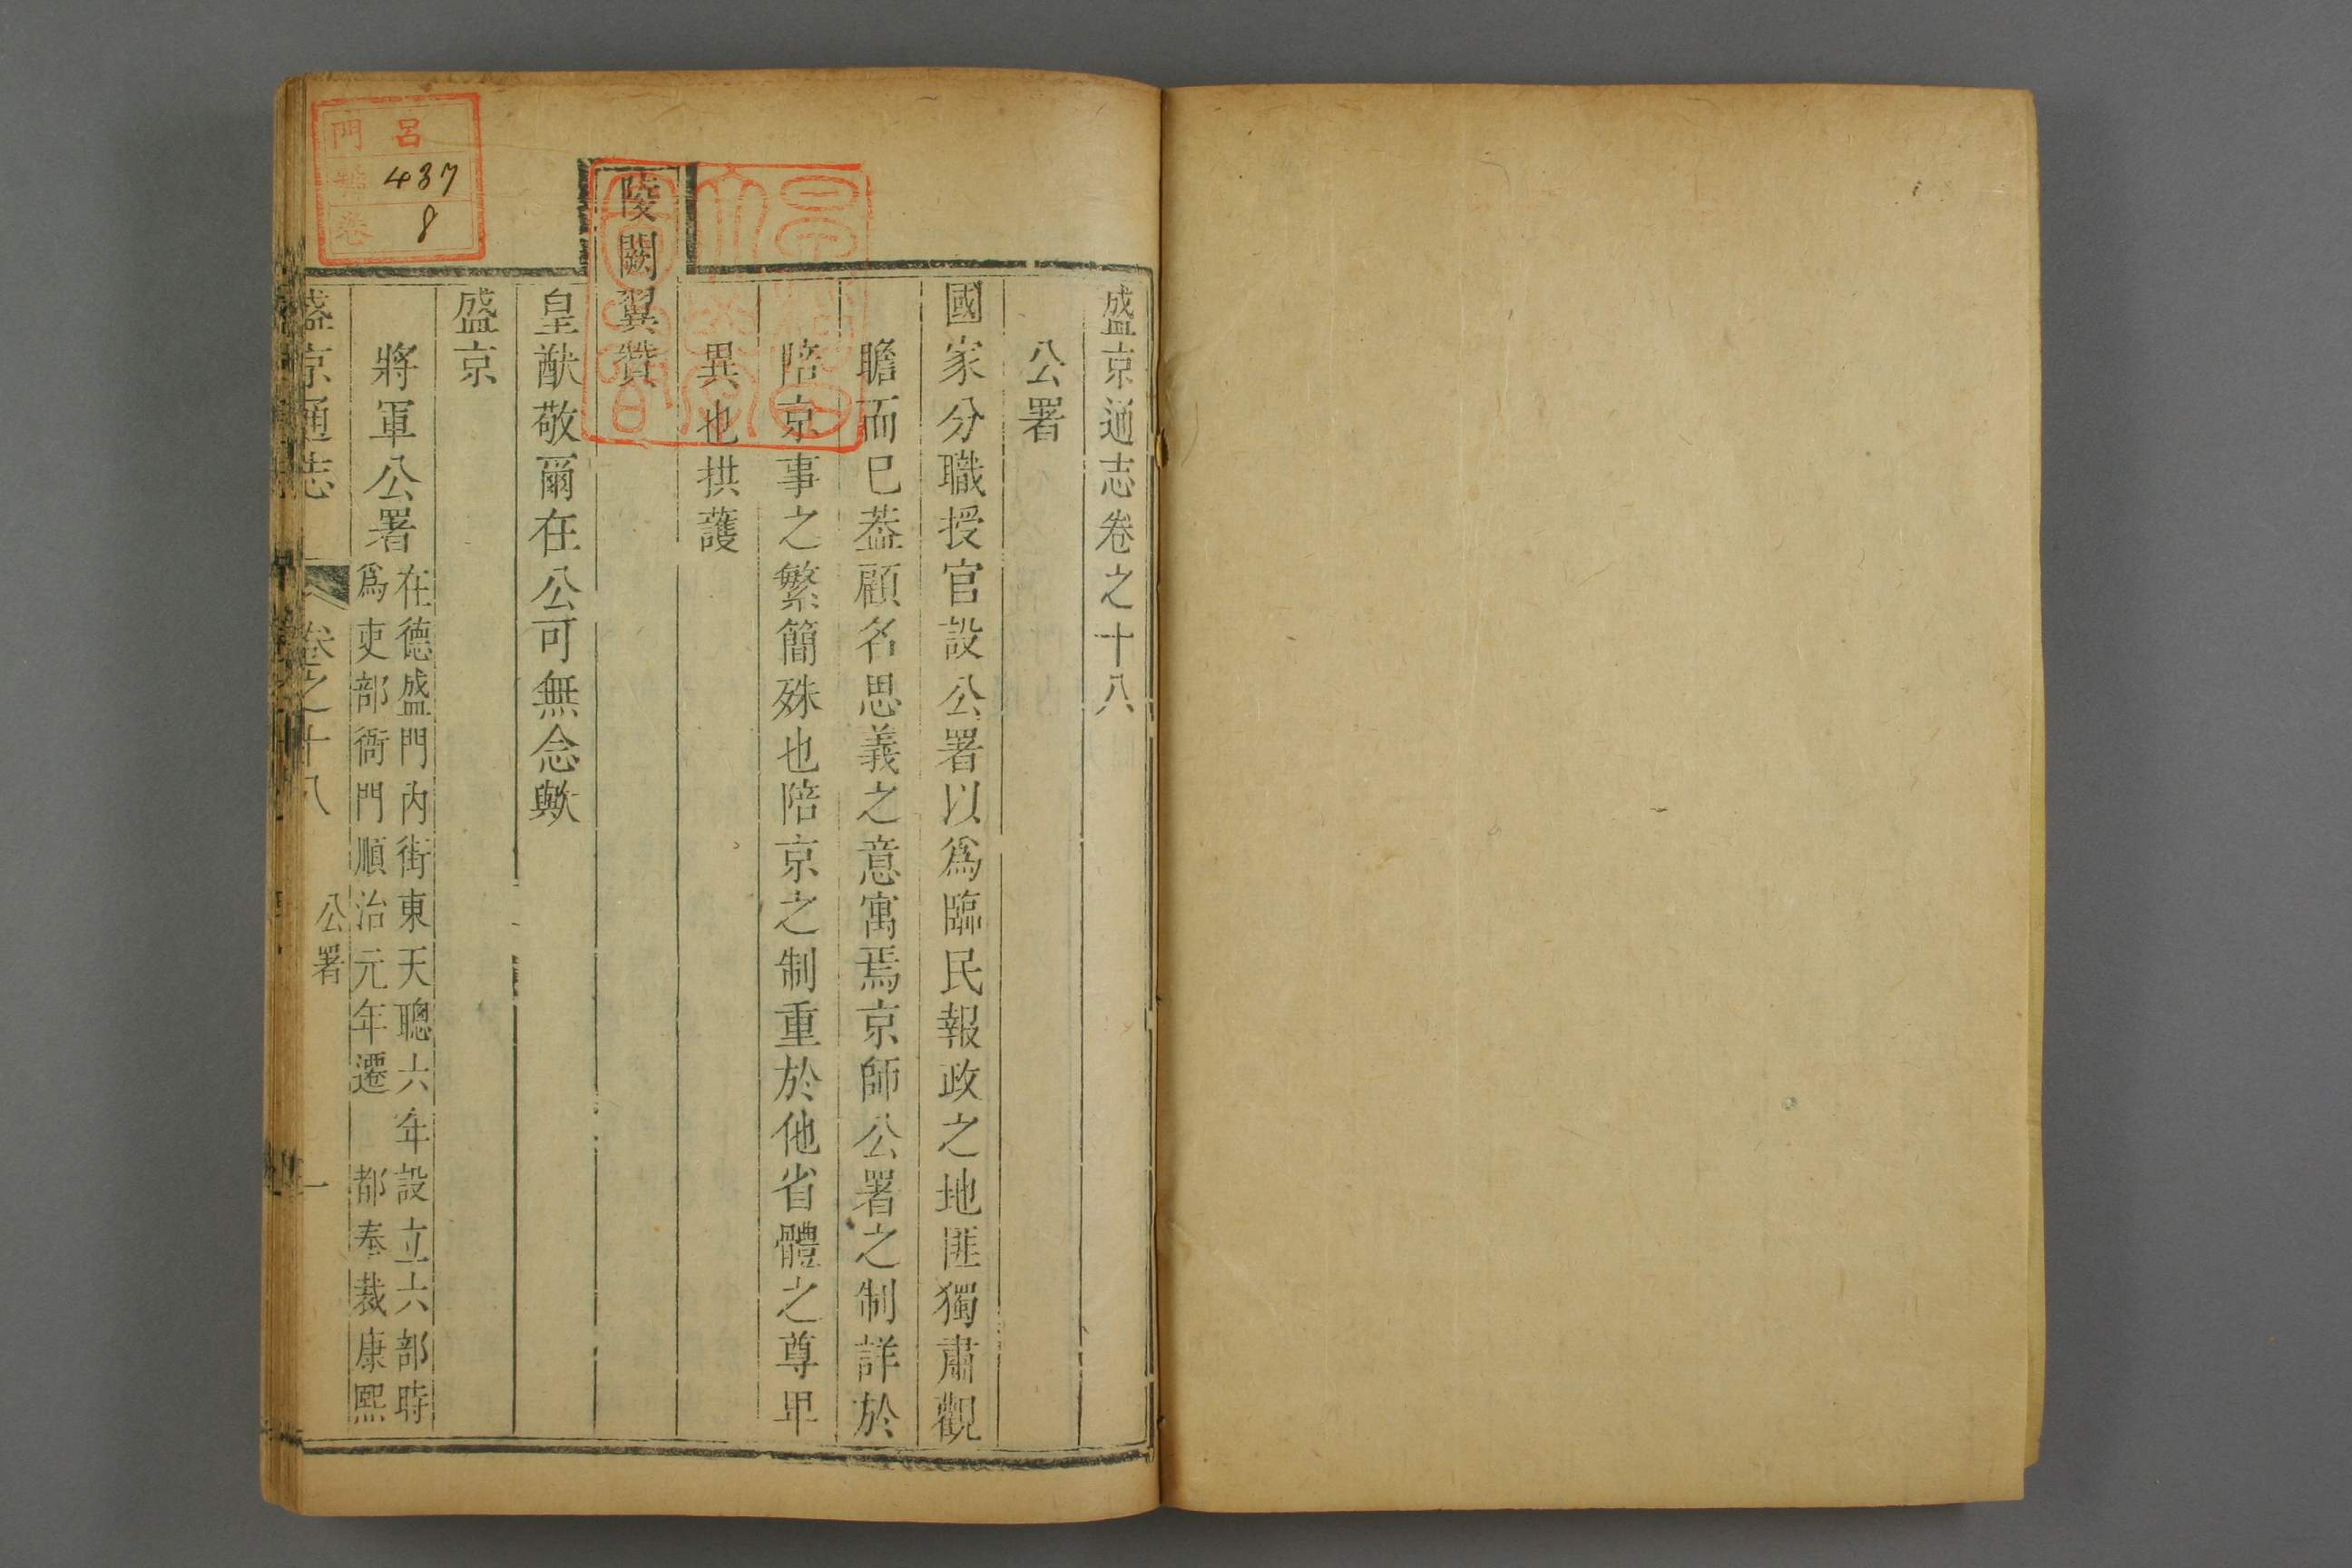 盛京通志卷之十八
公署
國家分職授官設公署以爲臨民報政之地匪獨肅觀
瞻而已葢顧名思義之意寓焉京師公署之制詳於
陪京事之繁簡殊也陪京之制重於他省體之尊卑
異也拱護
陵闕翼贊
皇猷敬爾在公可無念歟
盛京
將軍公署
在德盛門內街東天聰六年設立六部時
爲吏部衙門順治元年遷都奉裁康熙
盛京通志 卷之十八 公署 一
呂
門
437
號
8
卷